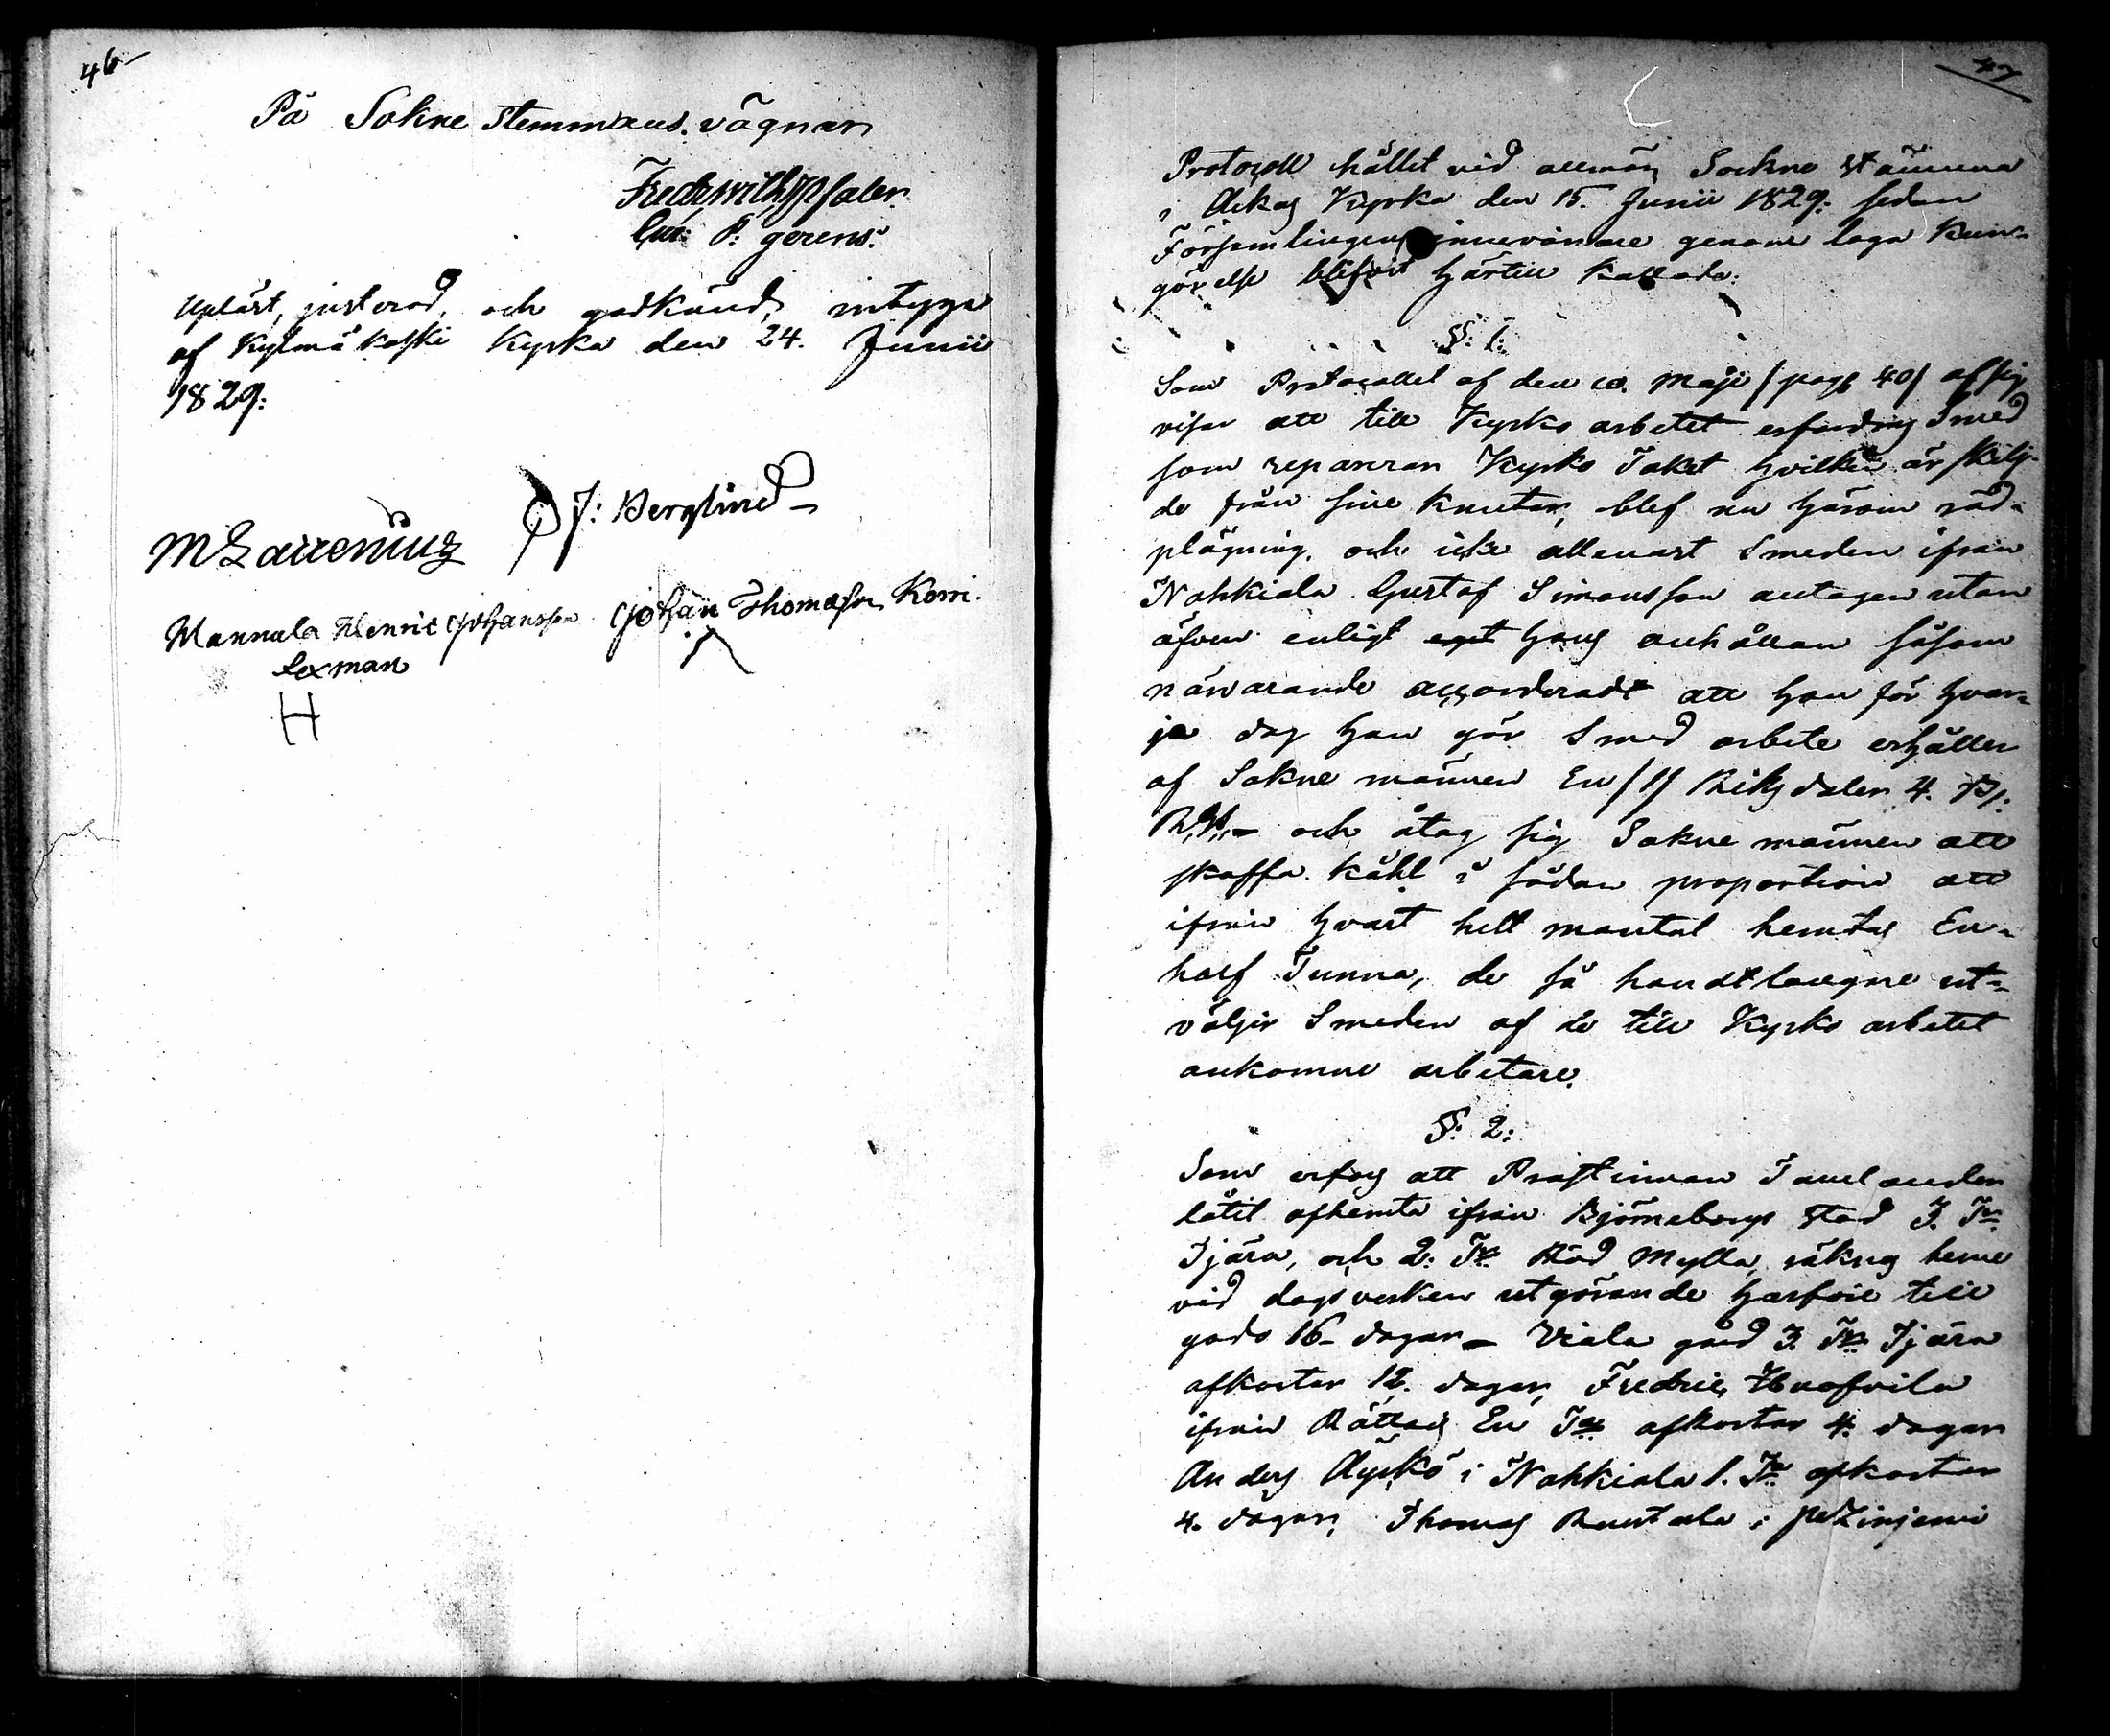 46
På Sokne stemmans vägnar
Fredr: Wilh: Ipsaler.
Cur: P: gerens.
Upläst, justerad, och godkänd, intyga
af Kylmäkoski Kyrka den 24. Junii
1829:
J: Berglind
M Laurenius
Mannala Henric Johansson Johan Thomasson Korri.
Sexman
H
47
Protocoll hållet vid allmän Sockne stämma
i Ackas Kyrka den 15. Junii 1829: sedan
Församlingens innevånare genom laga Kun-
görelse blifvit härtill Kallade.
§: 1:
Som Protocollet af den 10. Maji /pag: 40/ af sig
visar att till Kyrko arbetet erfordras Smed
som reparerar Kyrko Taket hvilket är skilj-
de från sine knutar, blef nu härom råd-
plägning, och icke allenast Smeden ifrån
Nahkiala Gustaf Simonsson antagen utan
äfven enligt eget hans anhållan såsom
närvarande accorderadt att han för hvar-
je dag han gör Smed arbete erhåller
af Sokne männen En /1/ Riksdaler 4. s/:
R,G,- och åtog sig Sokne männen att
skaffa kåhl i sådan proportion att
ifrån hvart helt mantal hemtas En-
half Tunna, de få handtlangare ut-
väljer Smeden af de till Kyrko arbetet
ankomne arbetare.
§: 2:
Som erfors att Prostinnan Tavelander
låtit afhemta ifrån Björneborgs stad 3. Tr
Tjära, och 2: Tr Röd Mylla, räknas henne
vid dagsverken utgörande härföre till
godo 16 dagar - Viala gård 3. Tr Tjära
afkortar 12. dagar, Fredric
ifrån Rättas En Tr afkortar 4. dagar
Anders Äyskö i Nahkiala 1. Tr afkortar
4. dagar, Thomas i